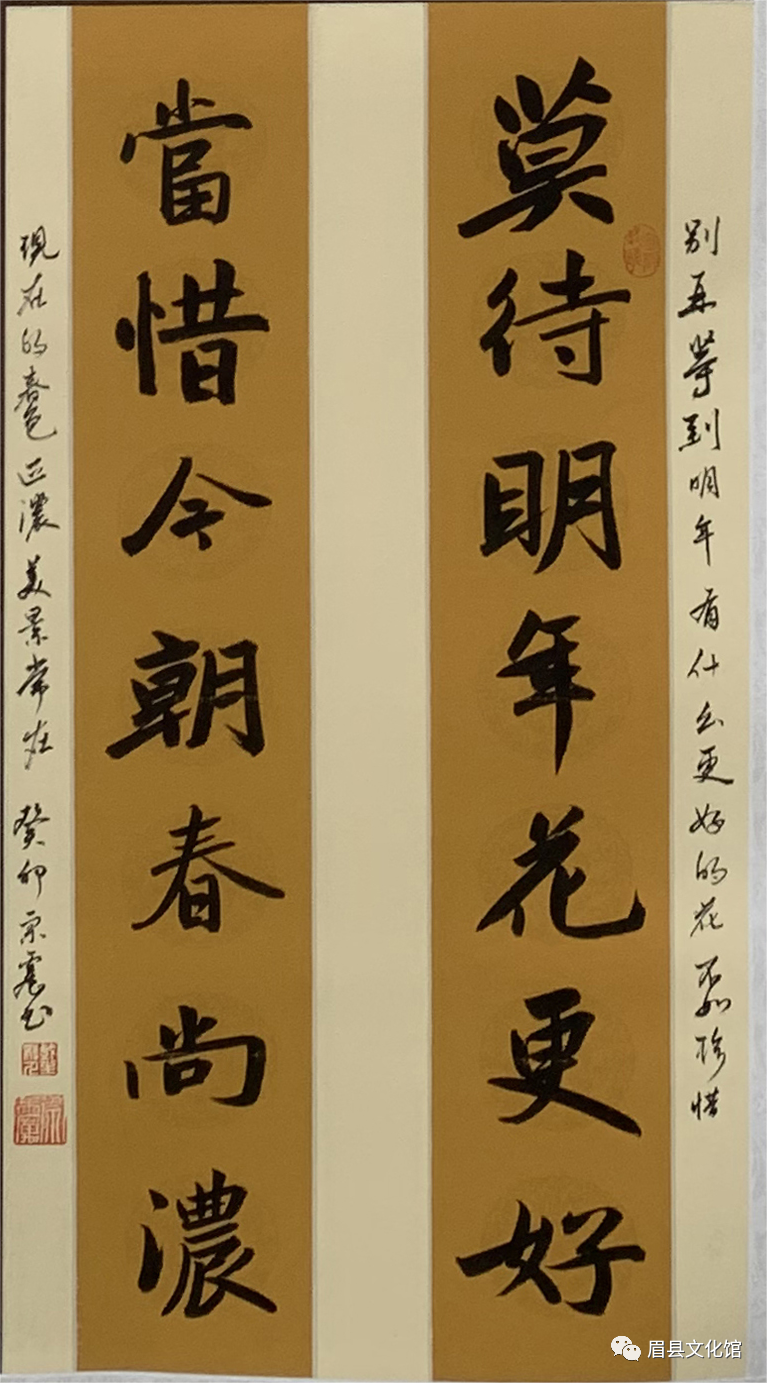 莫待明年花更好
當惜今朝春尚濃
别再等到明年看什么更好的花不如珍惜
现在的春色正濃美景常在 癸卯宗霞书
眉县文化馆